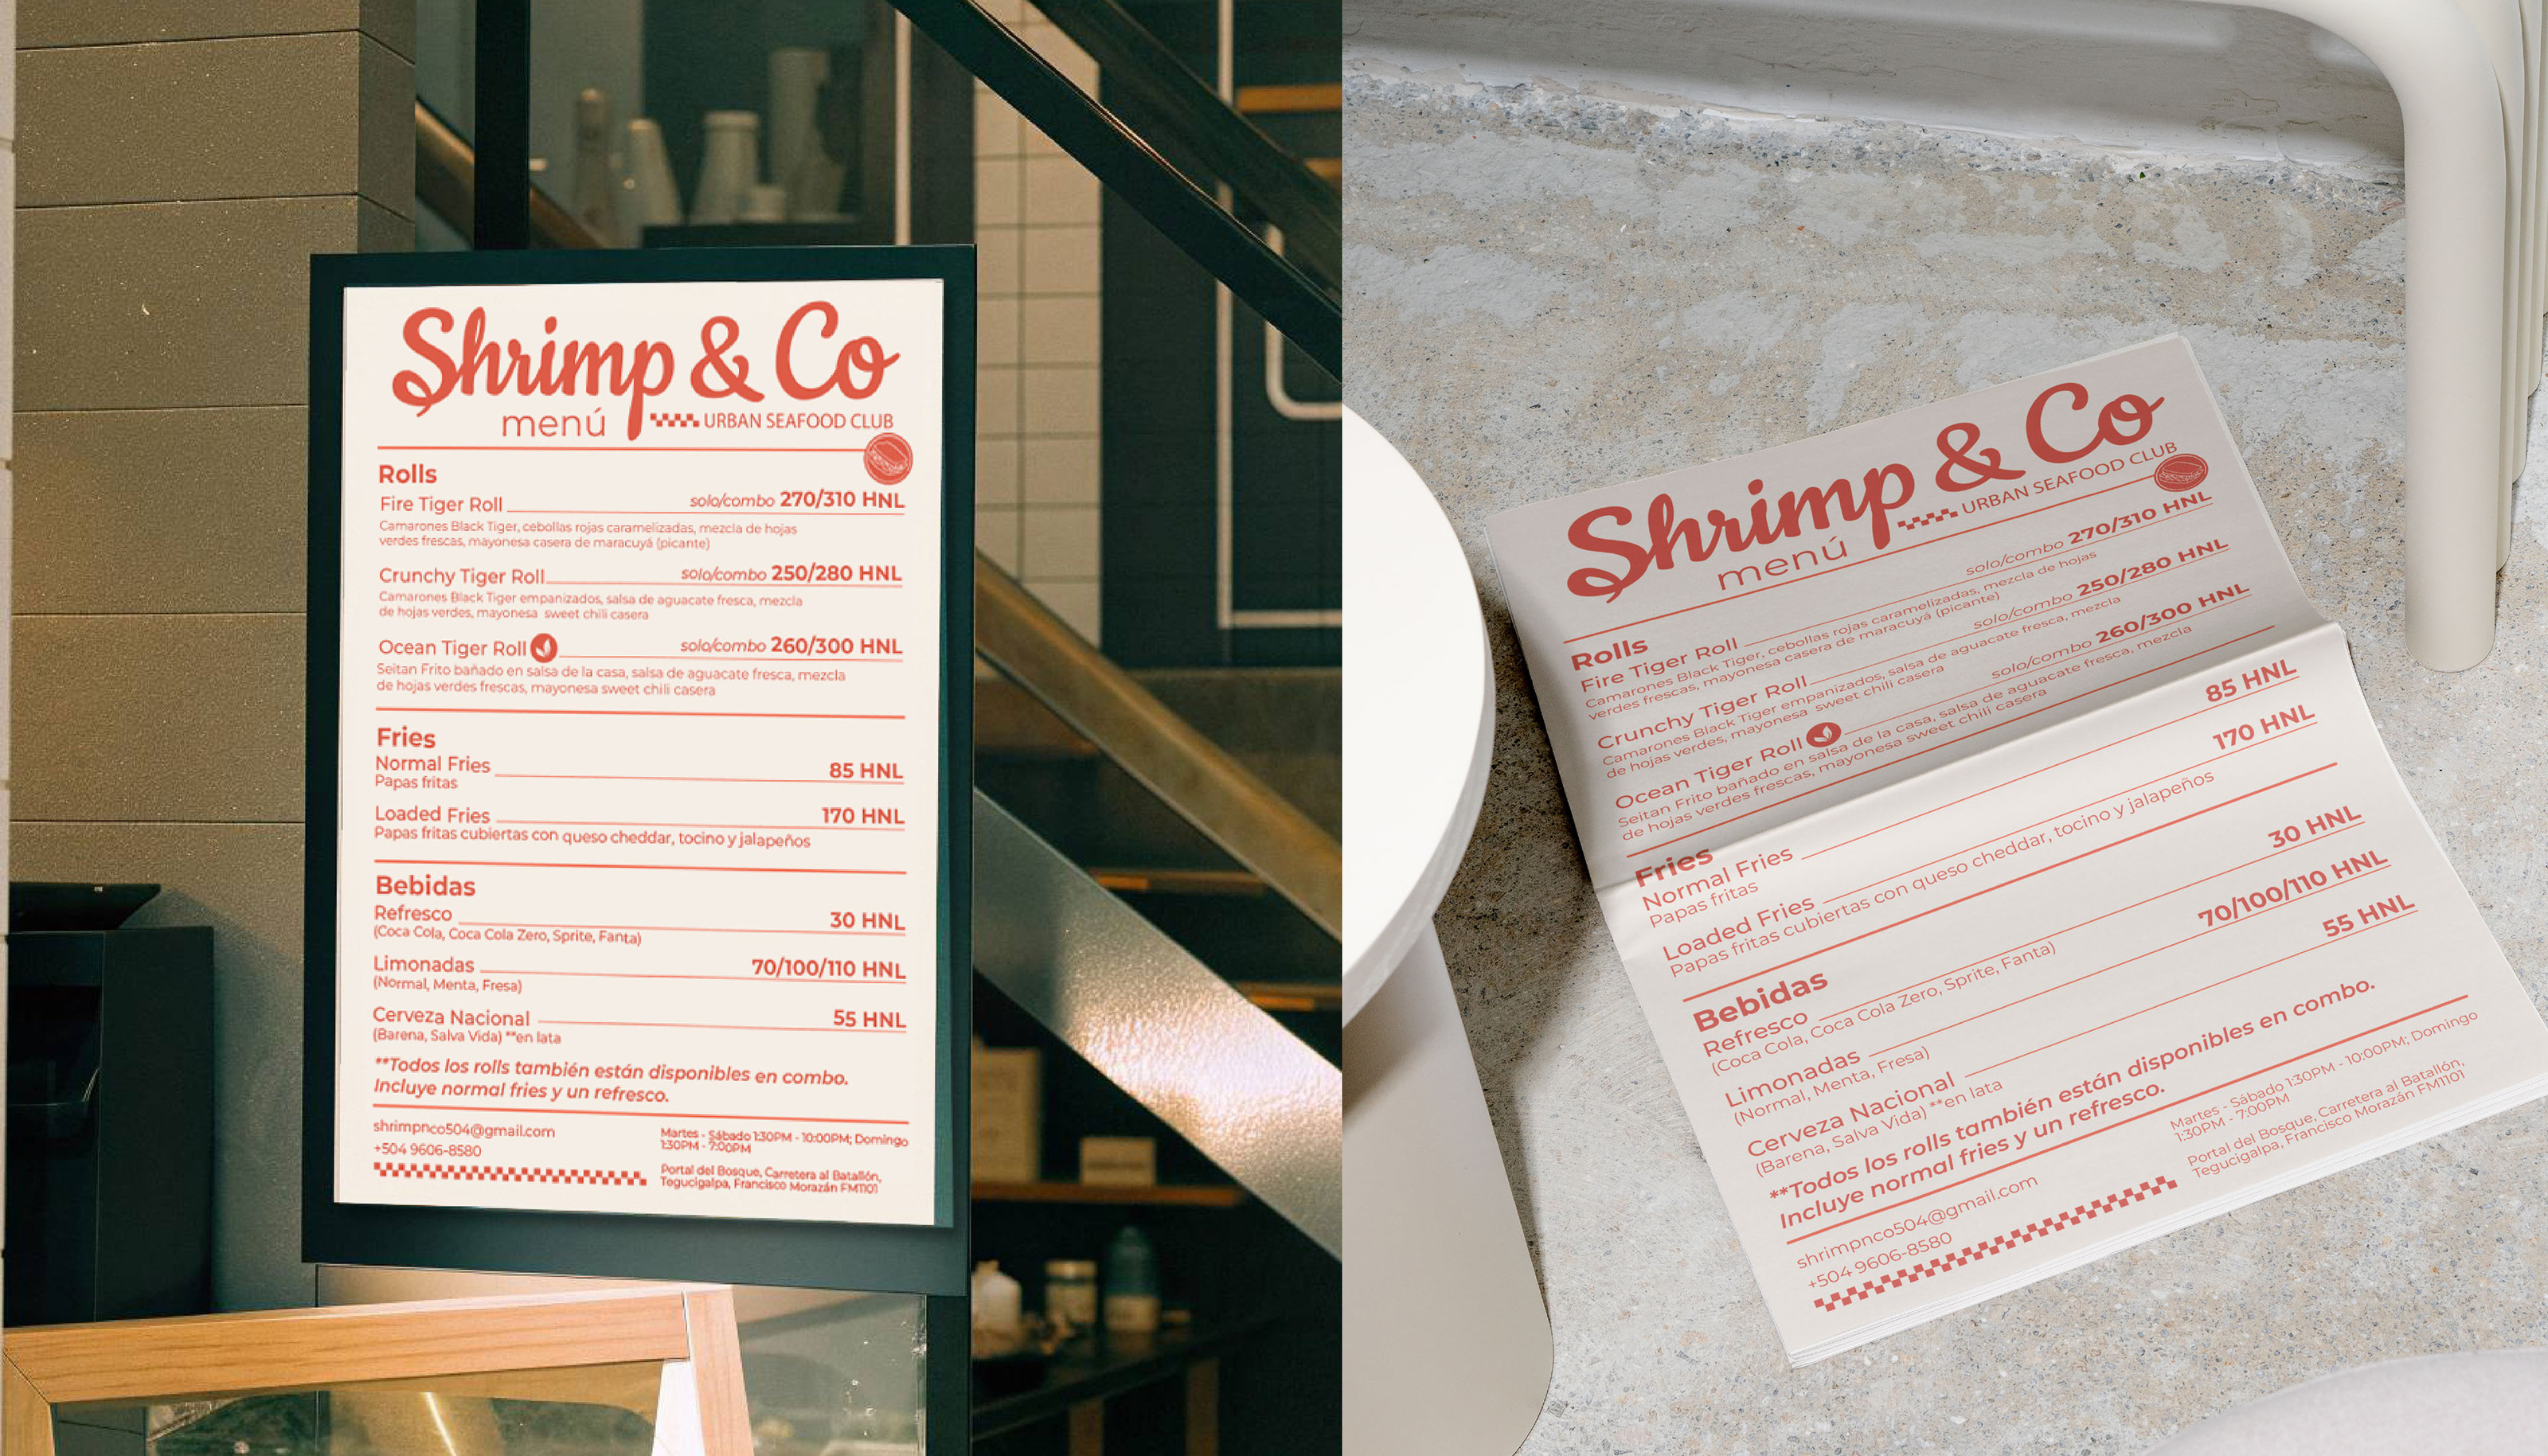 Shrimp & Co
menú URBAN SEAFOOD CLUB
Rolls
Fire Tiger Roll solo/combo 270/310 HNL
Camarones Black Tiger, cebollas rojas caramelizadas, mezcla de hojas
verdes frescas, mayonesa casera de maracuyá (picante)
Crunchy Tiger Roll solo/combo 250/280 HNL
Camarones Black Tiger empanizados, salsa de aguacate fresca, mezcla
de hojas verdes, mayonesa sweet chili casera
Ocean Tiger Roll solo/combo 260/300 HNL
Seitan Frito bañado en salsa de la casa, salsa de aguacate fresca, mezcla
de hojas verdes frescas, mayonesa sweet chili casera
Fries
Normal Fries 85 HNL
Papas fritas
Loaded Fries 170 HNL
Papas fritas cubiertas con queso cheddar, tocino y jalapeños
Bebidas
Refresco 30 HNL
(Coca Cola, Coca Cola Zero, Sprite, Fanta)
Limonadas 70/100/110 HNL
(Normal, Menta, Fresa)
Cerveza Nacional 55 HNL
(Barena, Salva Vida) **en lata
**Todos los rolls también están disponibles en combo.
Incluye normal fries y un refresco.
shrimpnco504@gmail.com
+504 9606-8580
Martes - Sábado 1:30PM - 10:00PM; Domingo
1:30PM - 7:00PM
Portal del Bosque, Carretera al Batallón,
Tegucigalpa, Francisco Morazán FM1101
Shrimp & Co
menú URBAN SEAFOOD CLUB
Rolls
Fire Tiger Roll solo/combo 270/310 HNL
Camarones Black Tiger, cebollas rojas caramelizadas, mezcla de hojas
verdes frescas, mayonesa casera de maracuyá (picante)
Crunchy Tiger Roll solo/combo 250/280 HNL
Camarones Black Tiger empanizados, salsa de aguacate fresca, mezcla
de hojas verdes, mayonesa sweet chili casera
Ocean Tiger Roll solo/combo 260/300 HNL
Seitan Frito bañado en salsa de la casa, salsa de aguacate fresca, mezcla
de hojas verdes frescas, mayonesa sweet chili casera
Fries
Normal Fries 85 HNL
Papas fritas
Loaded Fries 170 HNL
Papas fritas cubiertas con queso cheddar, tocino y jalapeños
Bebidas
Refresco 30 HNL
(Coca Cola, Coca Cola Zero, Sprite, Fanta)
Limonadas 70/100/110 HNL
(Normal, Menta, Fresa)
Cerveza Nacional 55 HNL
(Barena, Salva Vida) **en lata
**Todos los rolls también están disponibles en combo.
Incluye normal fries y un refresco.
shrimpnco504@gmail.com
+504 9606-8580
Martes - Sábado 1:30PM - 10:00PM; Domingo
1:30PM - 7:00PM
Portal del Bosque, Carretera al Batallón,
Tegucigalpa, Francisco Morazán FM1101